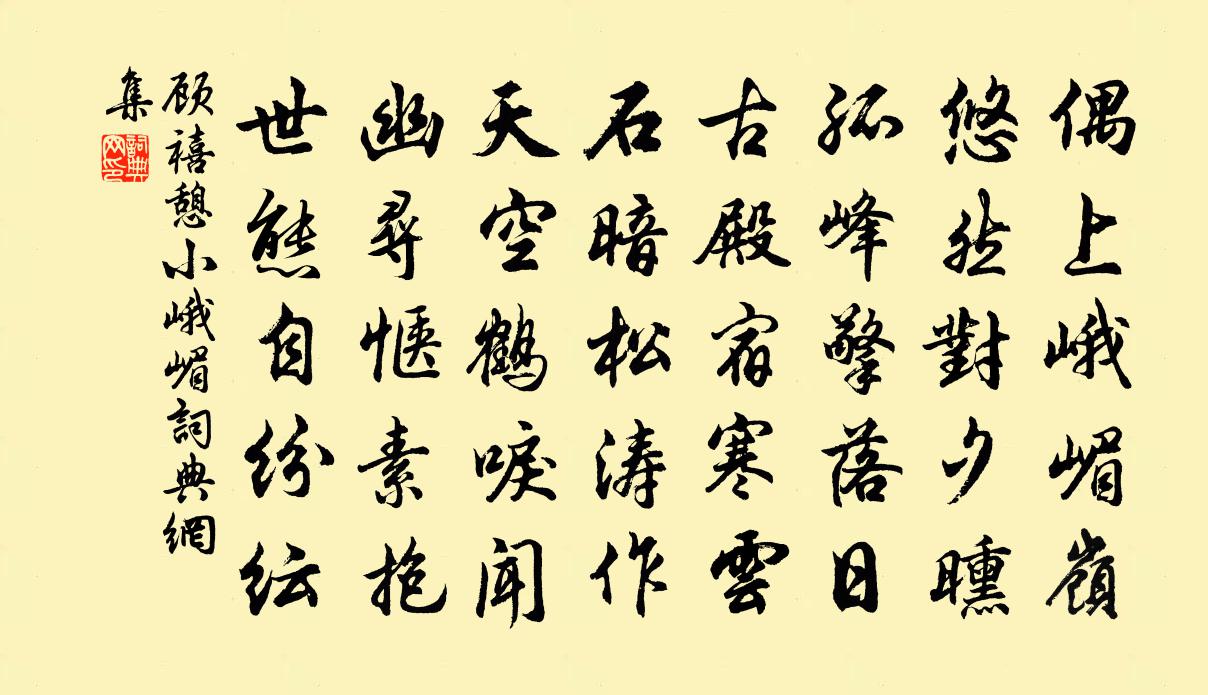 偶上峨嵋嶺
悠然對夕曛
孤峰擎落日
古殿宿寒雲
石暗松涛作
天空鶴唳聞
幽尋惬素抱
世態自纷纭
顾禧憩小峨嵋詞典網
集
詞典
网印